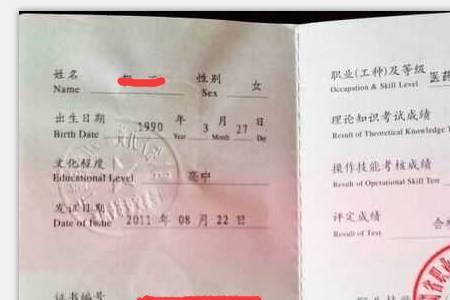 姓名 性别 女
Name Sex
出生日期 1990 年 3 月 27 日
Birth Date Year Month Day
文化程度 高中
Educational Level
发证日期 2011 年 08 月 22 日
Date of Issue
证书编号
职业(工种)及等级 医药
Occupation & Skill Level
理论知识考试成绩
Result of Theoretical Knowledge
操作技能考核成绩
Result of Operational Skill Test
评定成绩 合
Result of Test